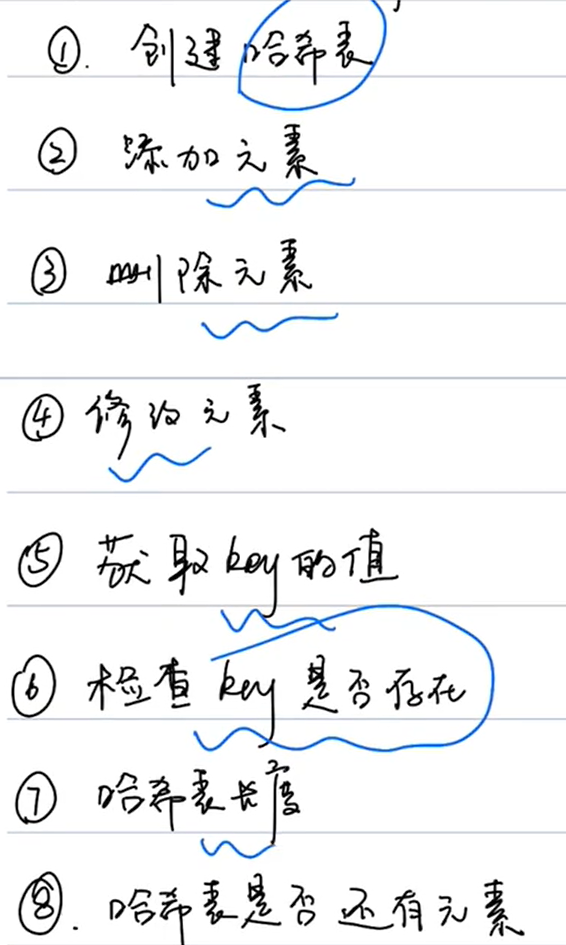 ①. 创建哈希表
② 添加元素
③ 删除元素
④ 修改元素
⑤ 获取key的值
⑥ 检查key是否存在
⑦ 哈希表长度
⑧. 哈希表是否还有元素